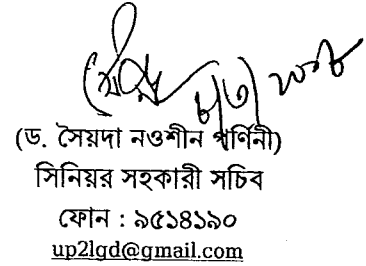 (ড. সৈয়দা নওশীন পর্ণিনী)
সিনিয়র সহকারী সচিব
ফোন : ৯৫১৪১৯০
up2lgd@gmail.com